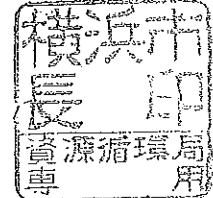 横浜市
長印
資源循環局
専用